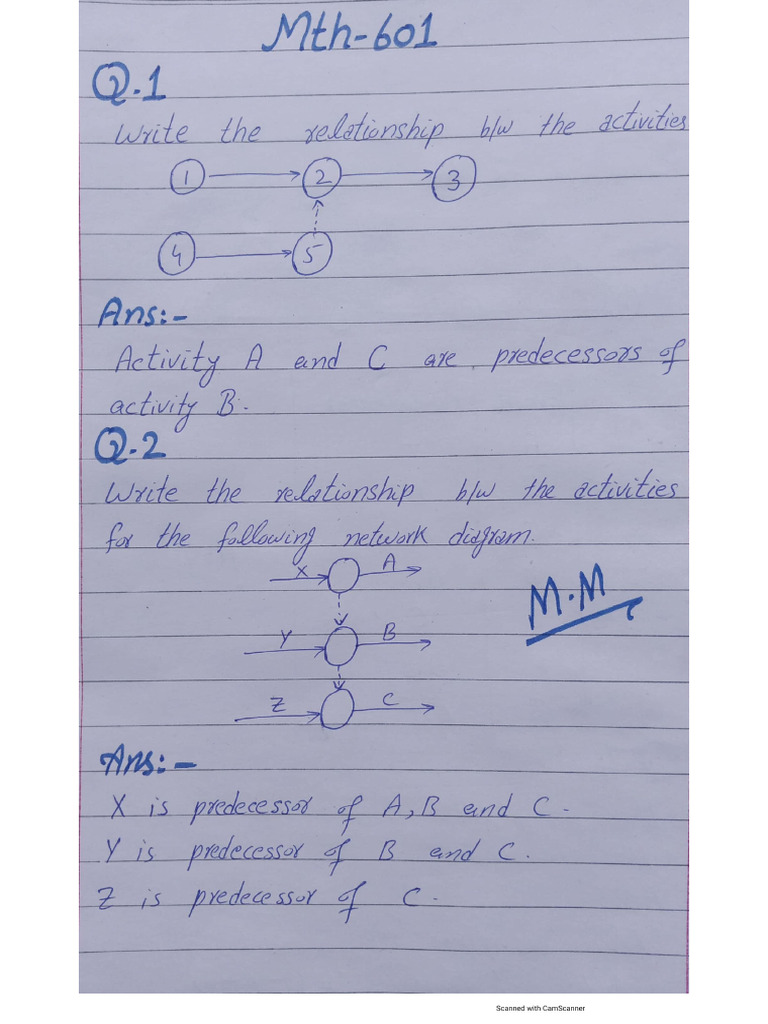 Mth-601
Q.1
Write the relationship b/w the activities
1 2 3
4 5
Ans:-
Activity A and C are predecessors of
activity B.
Q.2
Write the relationship b/w the activities
for the following network diagram.
X A
M.M
Y B
Z C
Ans:-
X is predecessor of A, B and C.
Y is predecessor of B and C.
Z is predecessor of C.
Scanned with CamScanner